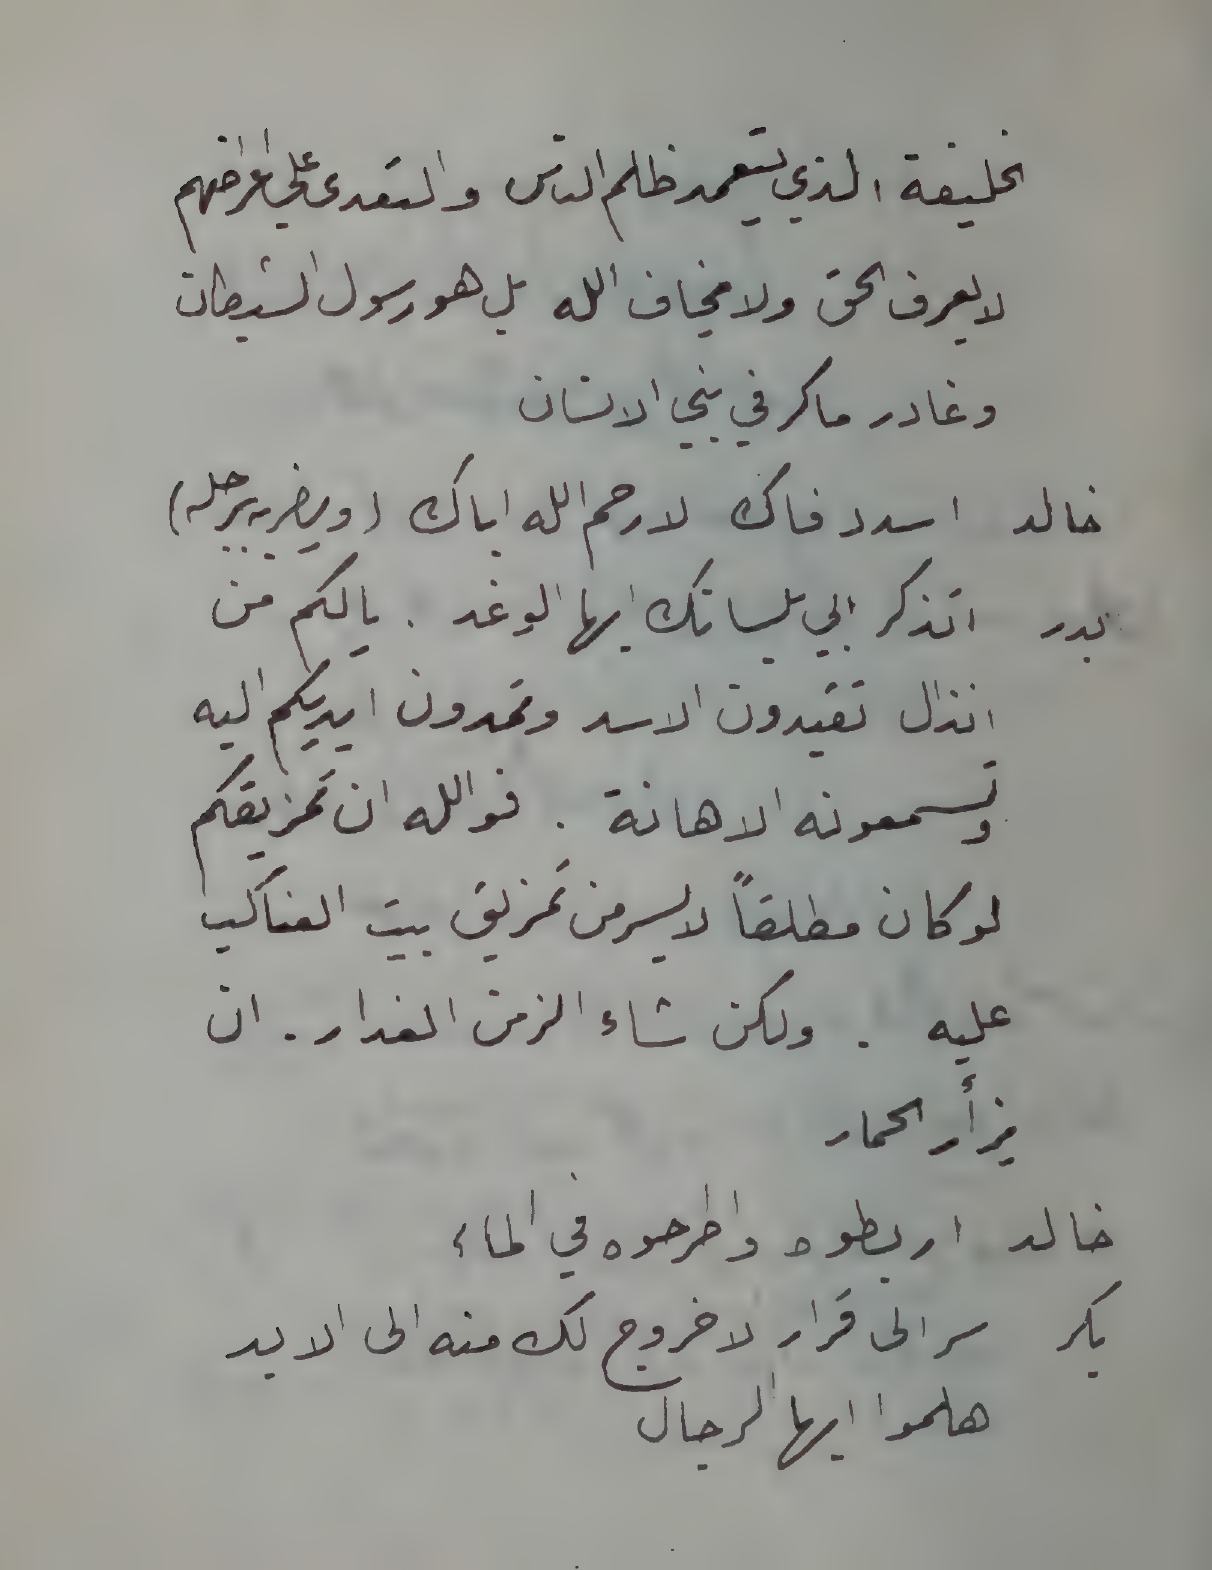 خليفة الذي يتعمد ظلم الناس والتعدي على اعراضهم
لا يعرف الحق ولا يخاف الله بل هو رسول الشيطان
وغادر ماكر في بني الانسان
خالد اسدد فاك لا رحم الله اباك (ويضربه برجله)
بدر اتذكر ابي بلسانك ايها الوغد . يالكم من
انذال تقيدون الاسد وتمدون ايديكم اليه
وتسمعونه الاهانة . فوالله ان تمزيقكم
لو كان مطلقاً لايسر من تمزيق بيت العناكب
عليه . ولكن شاء الزمن الغدار . ان
يزأر الحمار
خالد اربطوه واطرحوه في الماء
بكر سر الى قرار لا خروج لك منه الى الابد
هلموا ايها الرجال